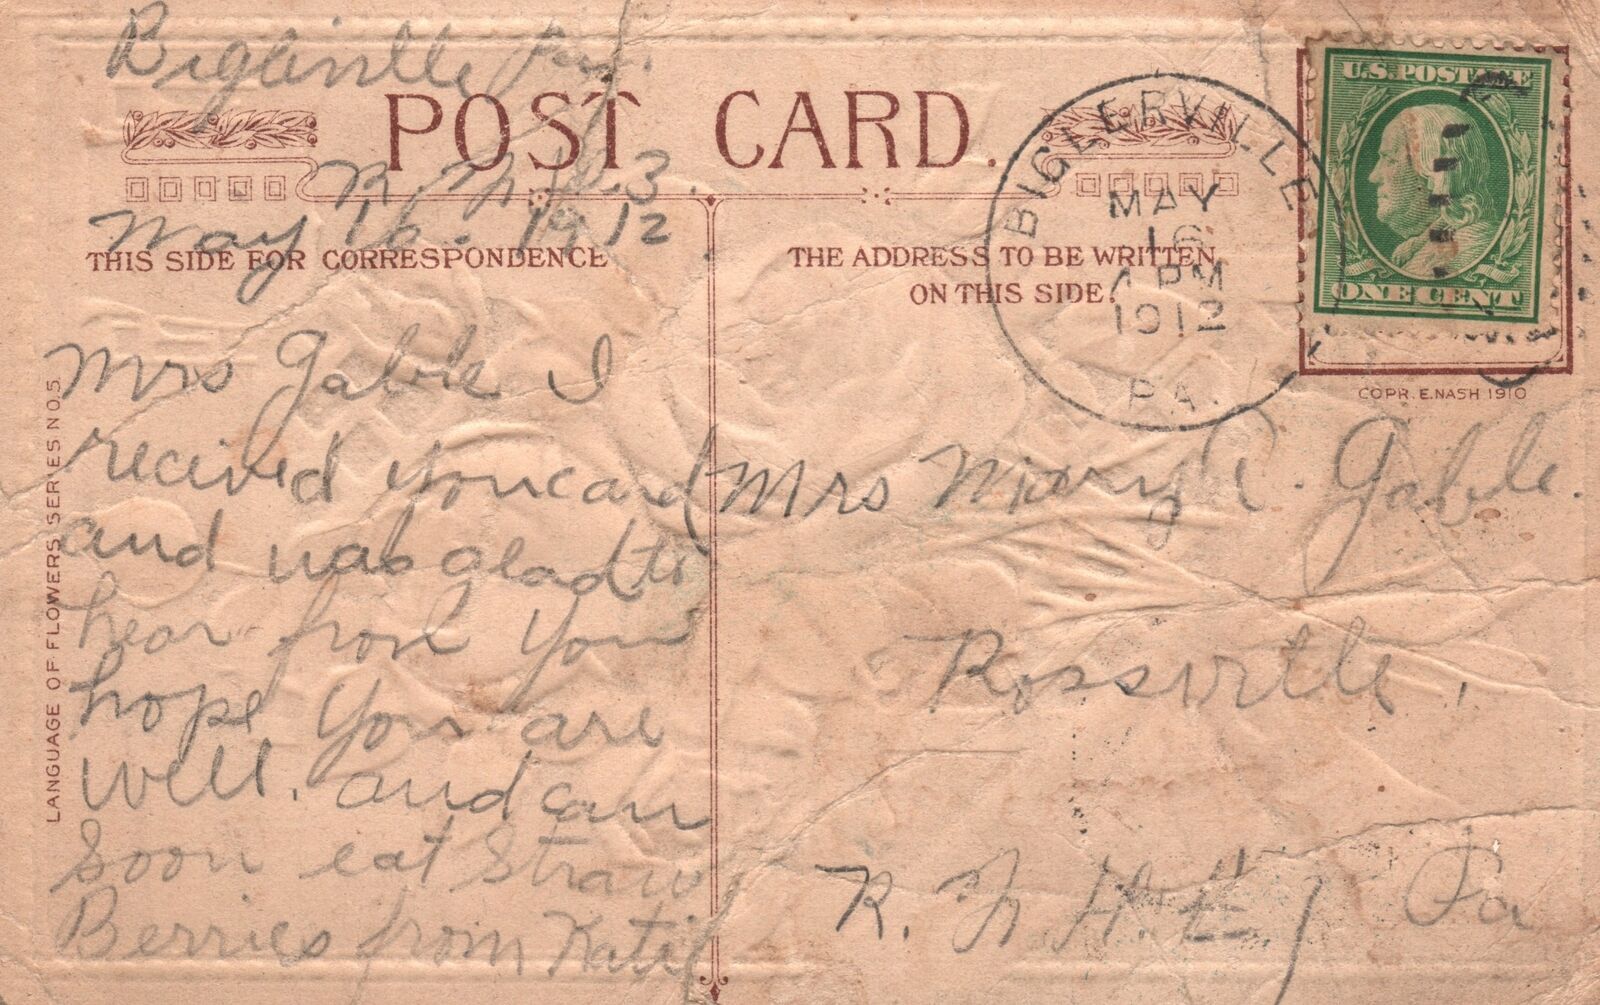 Biglerville Pa.
POST CARD.
R. F. D. 3.
May 16 - 1912
THIS SIDE FOR CORRESPONDENCE
Mrs Gable I
recived your card
and was glad to
hear from you
hope you are
well. and can
Soon eat Straw
Berries from Katie
LANGUAGE OF FLOWERS SERIES NO. 5.
THE ADDRESS TO BE WRITTEN
ON THIS SIDE.
BIGLERVILLE
MAY
16
PM
1912
PA.
U.S. POSTAGE
ONE CENT
COPR. E. NASH 1910
Mrs Mary C. Gable.
Rossville,
R. F. Pa